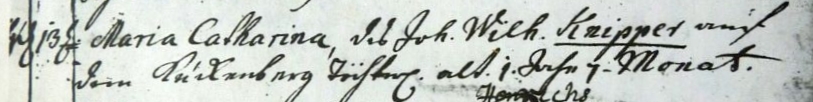 13 Maria Catharina, des Joh. Wilh. Knipper auf
dem Kückenberg Töchterl. alt. 1. Jahr 7. Monat.